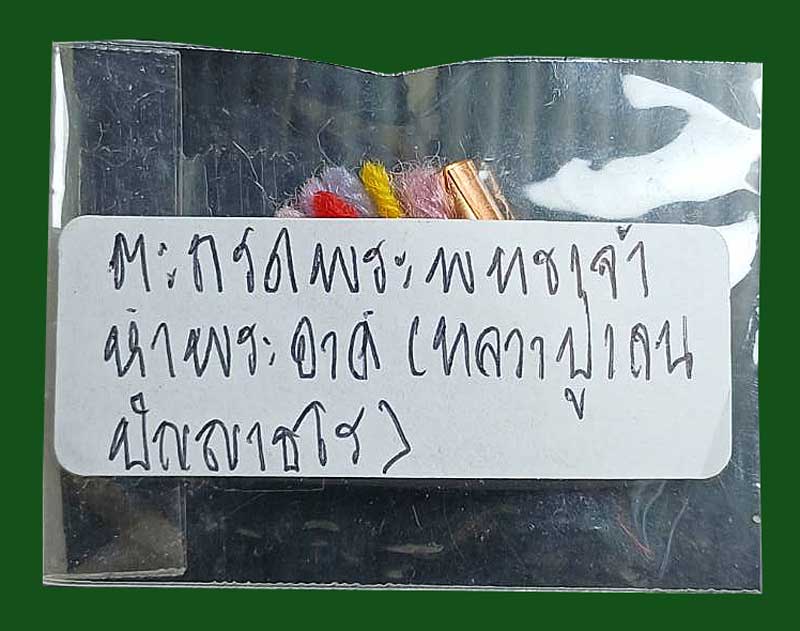 ตะกรุดพระพุทธเจ้า
ห้าพระองค์ (หลวงปู่เลน
ปัญญาธโร)